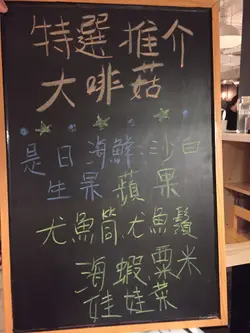 特選推介
大啡菇
是日海鮮:沙白
生果:蘋果
尤魚筒.尤魚鬚
海蝦.粟米
娃娃菜